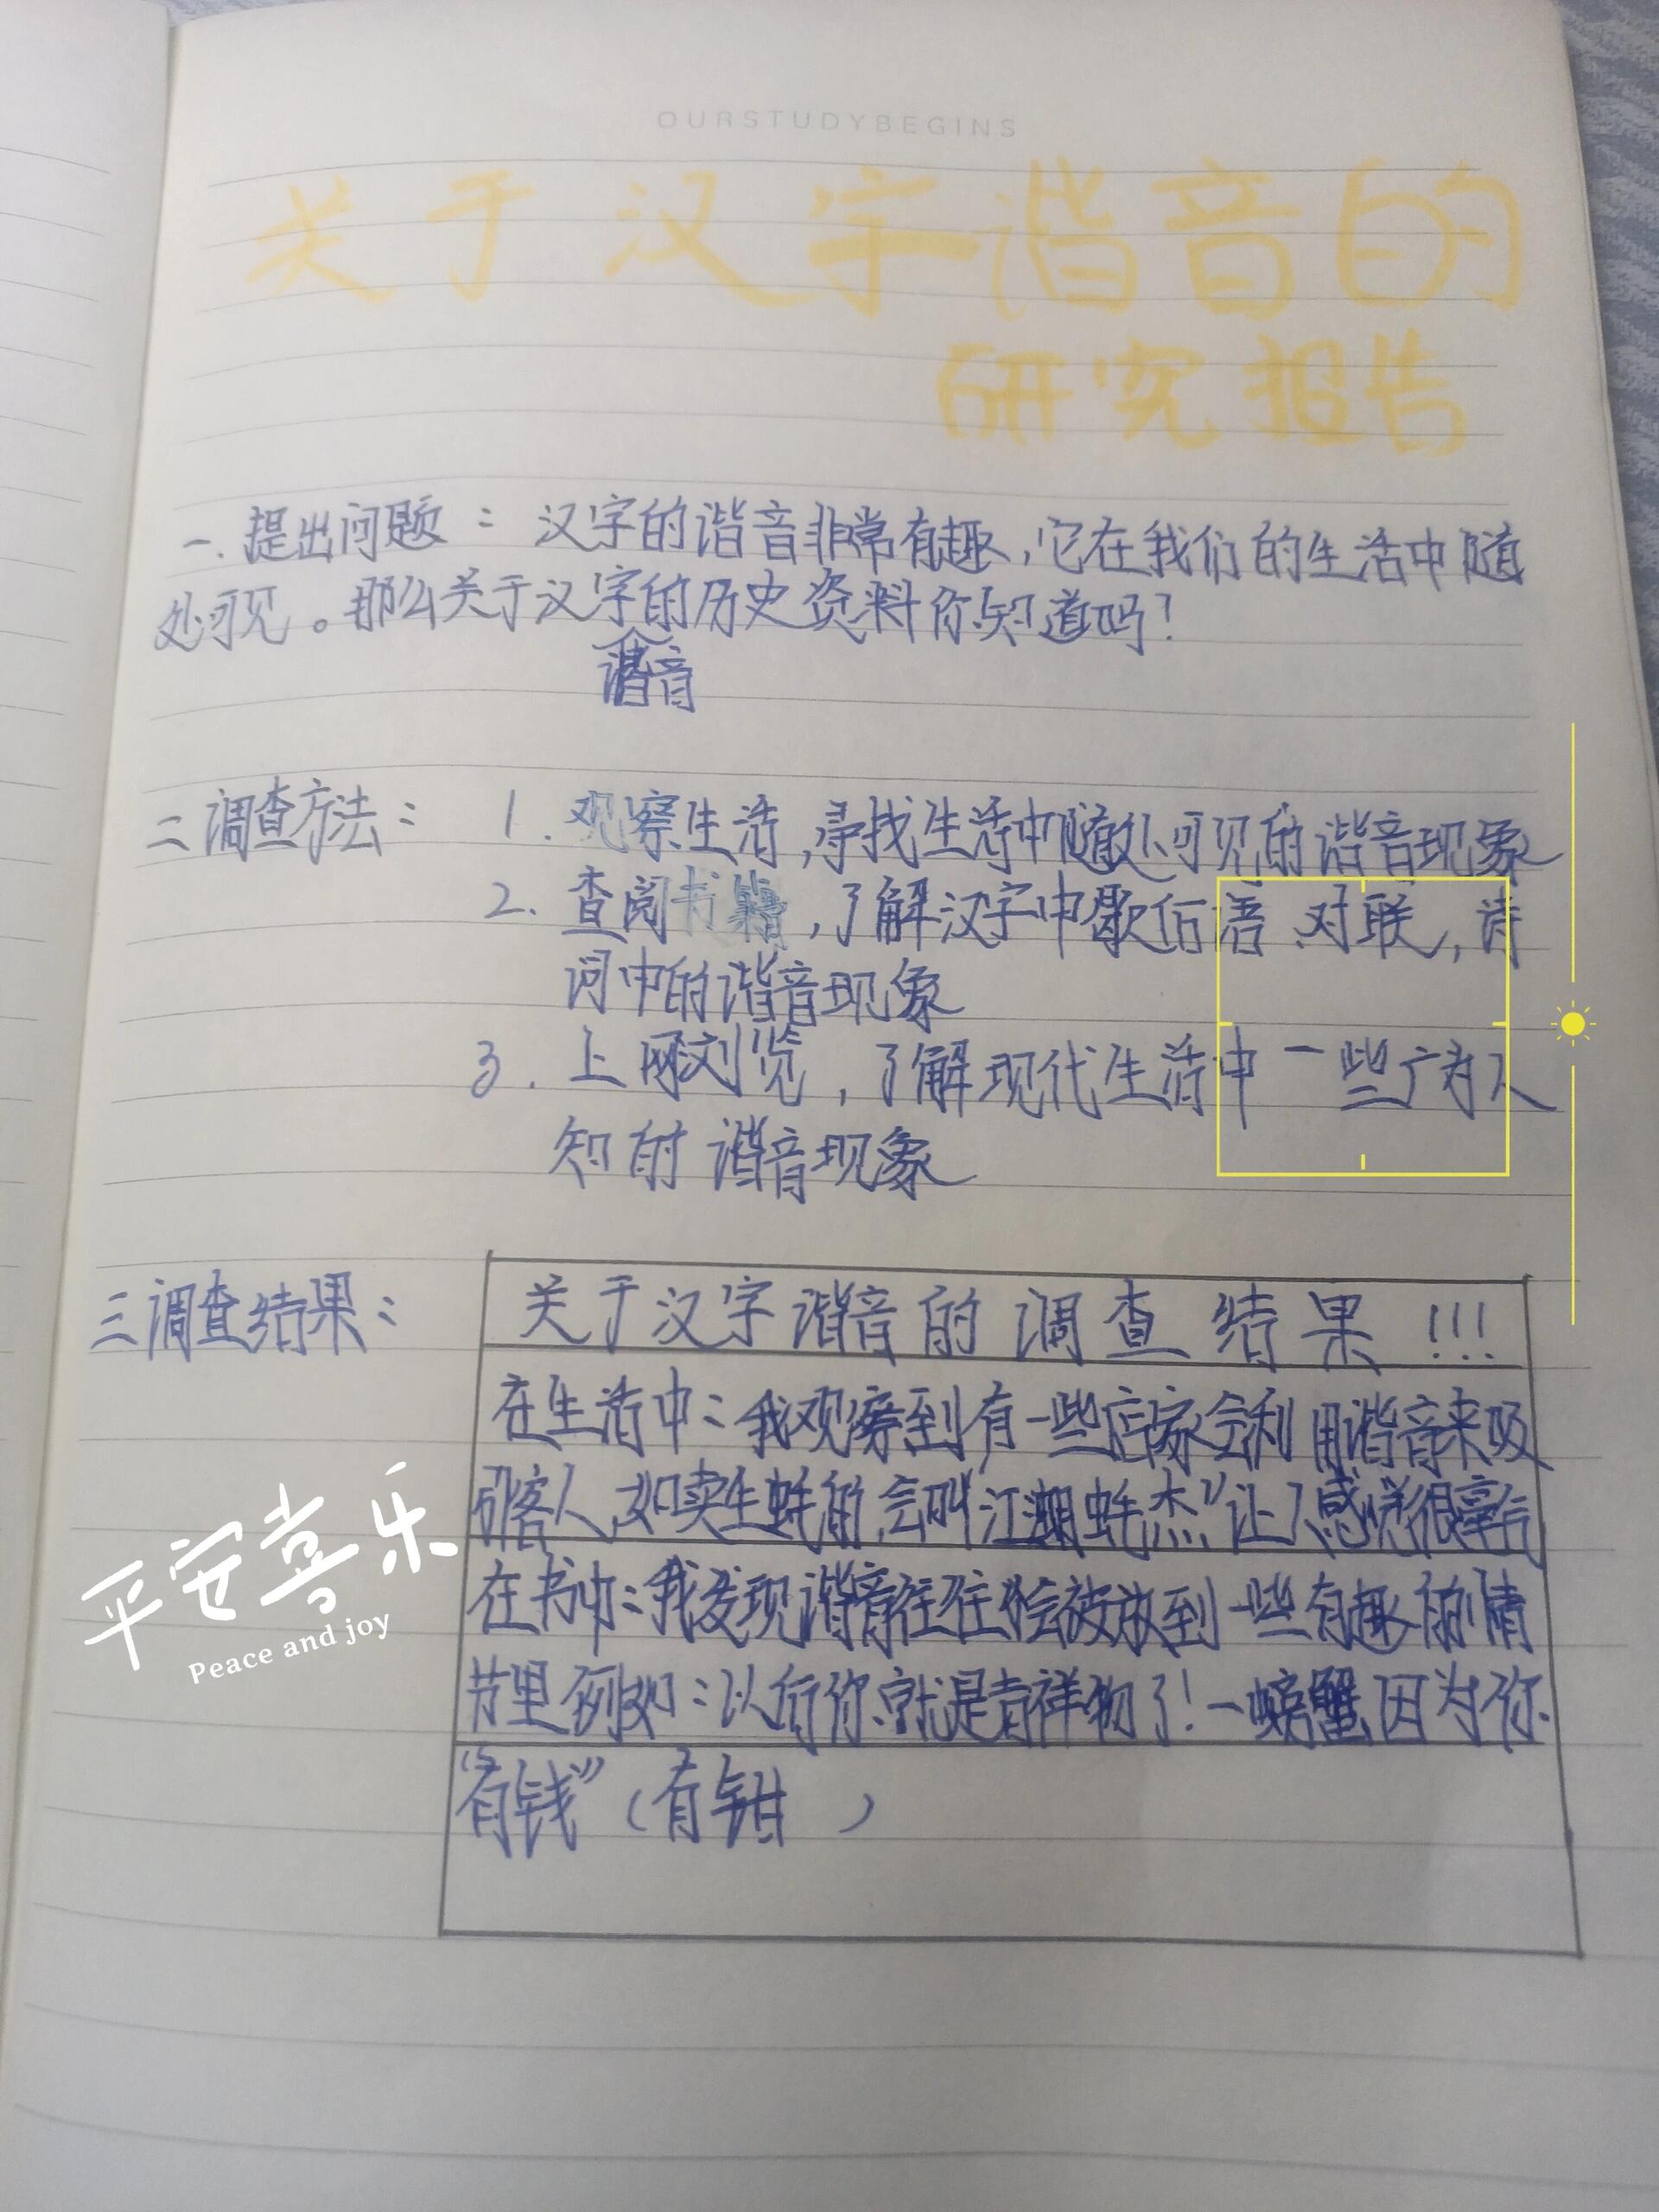 OURSTUDYBEGINS
关于汉字谐音的
研究报告
一.提出问题：汉字的谐音非常有趣,它在我们的生活中随
处可见。那么关于汉字的历史资料你知道吗?
谐音
二调查方法：1.观察生活,寻找生活中随处可见的谐音现象
2.查阅书籍,了解汉字中歇后语、对联,诗
词中的谐音现象
3.上网浏览,了解现代生活中一些广为人
知的谐音现象
三调查结果：
关于汉字谐音的调查结果!!!
在生活中：我观察到有一些店家会利用谐音来吸
引客人,如卖生蚝的,会叫“江湖蚝杰”让人感觉很霸气
在书中：我发现谐音往往会被放到一些有趣的情
节里例如：以后你就是吉祥物了!一螃蟹,因为你
“有钱”(有钳 )
平安喜乐
Peace and joy